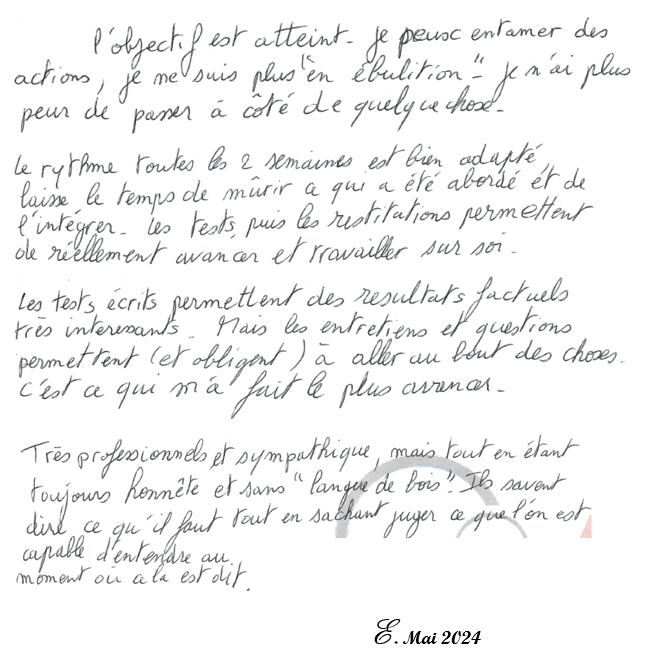 L'objectif est atteint - Je peux entamer des
actions, je me suis plus "en ébulition" - Je n'ai plus
peur de passer à côté de quelque chose -
Le rythme toutes les 2 semaines est bien adapté,
laisse le temps de mûrir ce qui a été abordé et de
l'intégrer - Les tests, puis les restitutions permettent
de réellement avancer et travailler sur soi.
Les tests écrits permettent des resultats factuels
très interessants. Mais les entretiens et questions
permettent (et obligent) à aller au bout des choses.
C'est ce qui m'a fait le plus avancer -
Très professionnels et sympathique, mais tout en étant
toujours honnête et sans "langue de bois". Ils savent
dire ce qu'il faut tout en sachant juger ce que l'on est
capable d'entendre au
moment où cela est dit.
E. Mai 2024